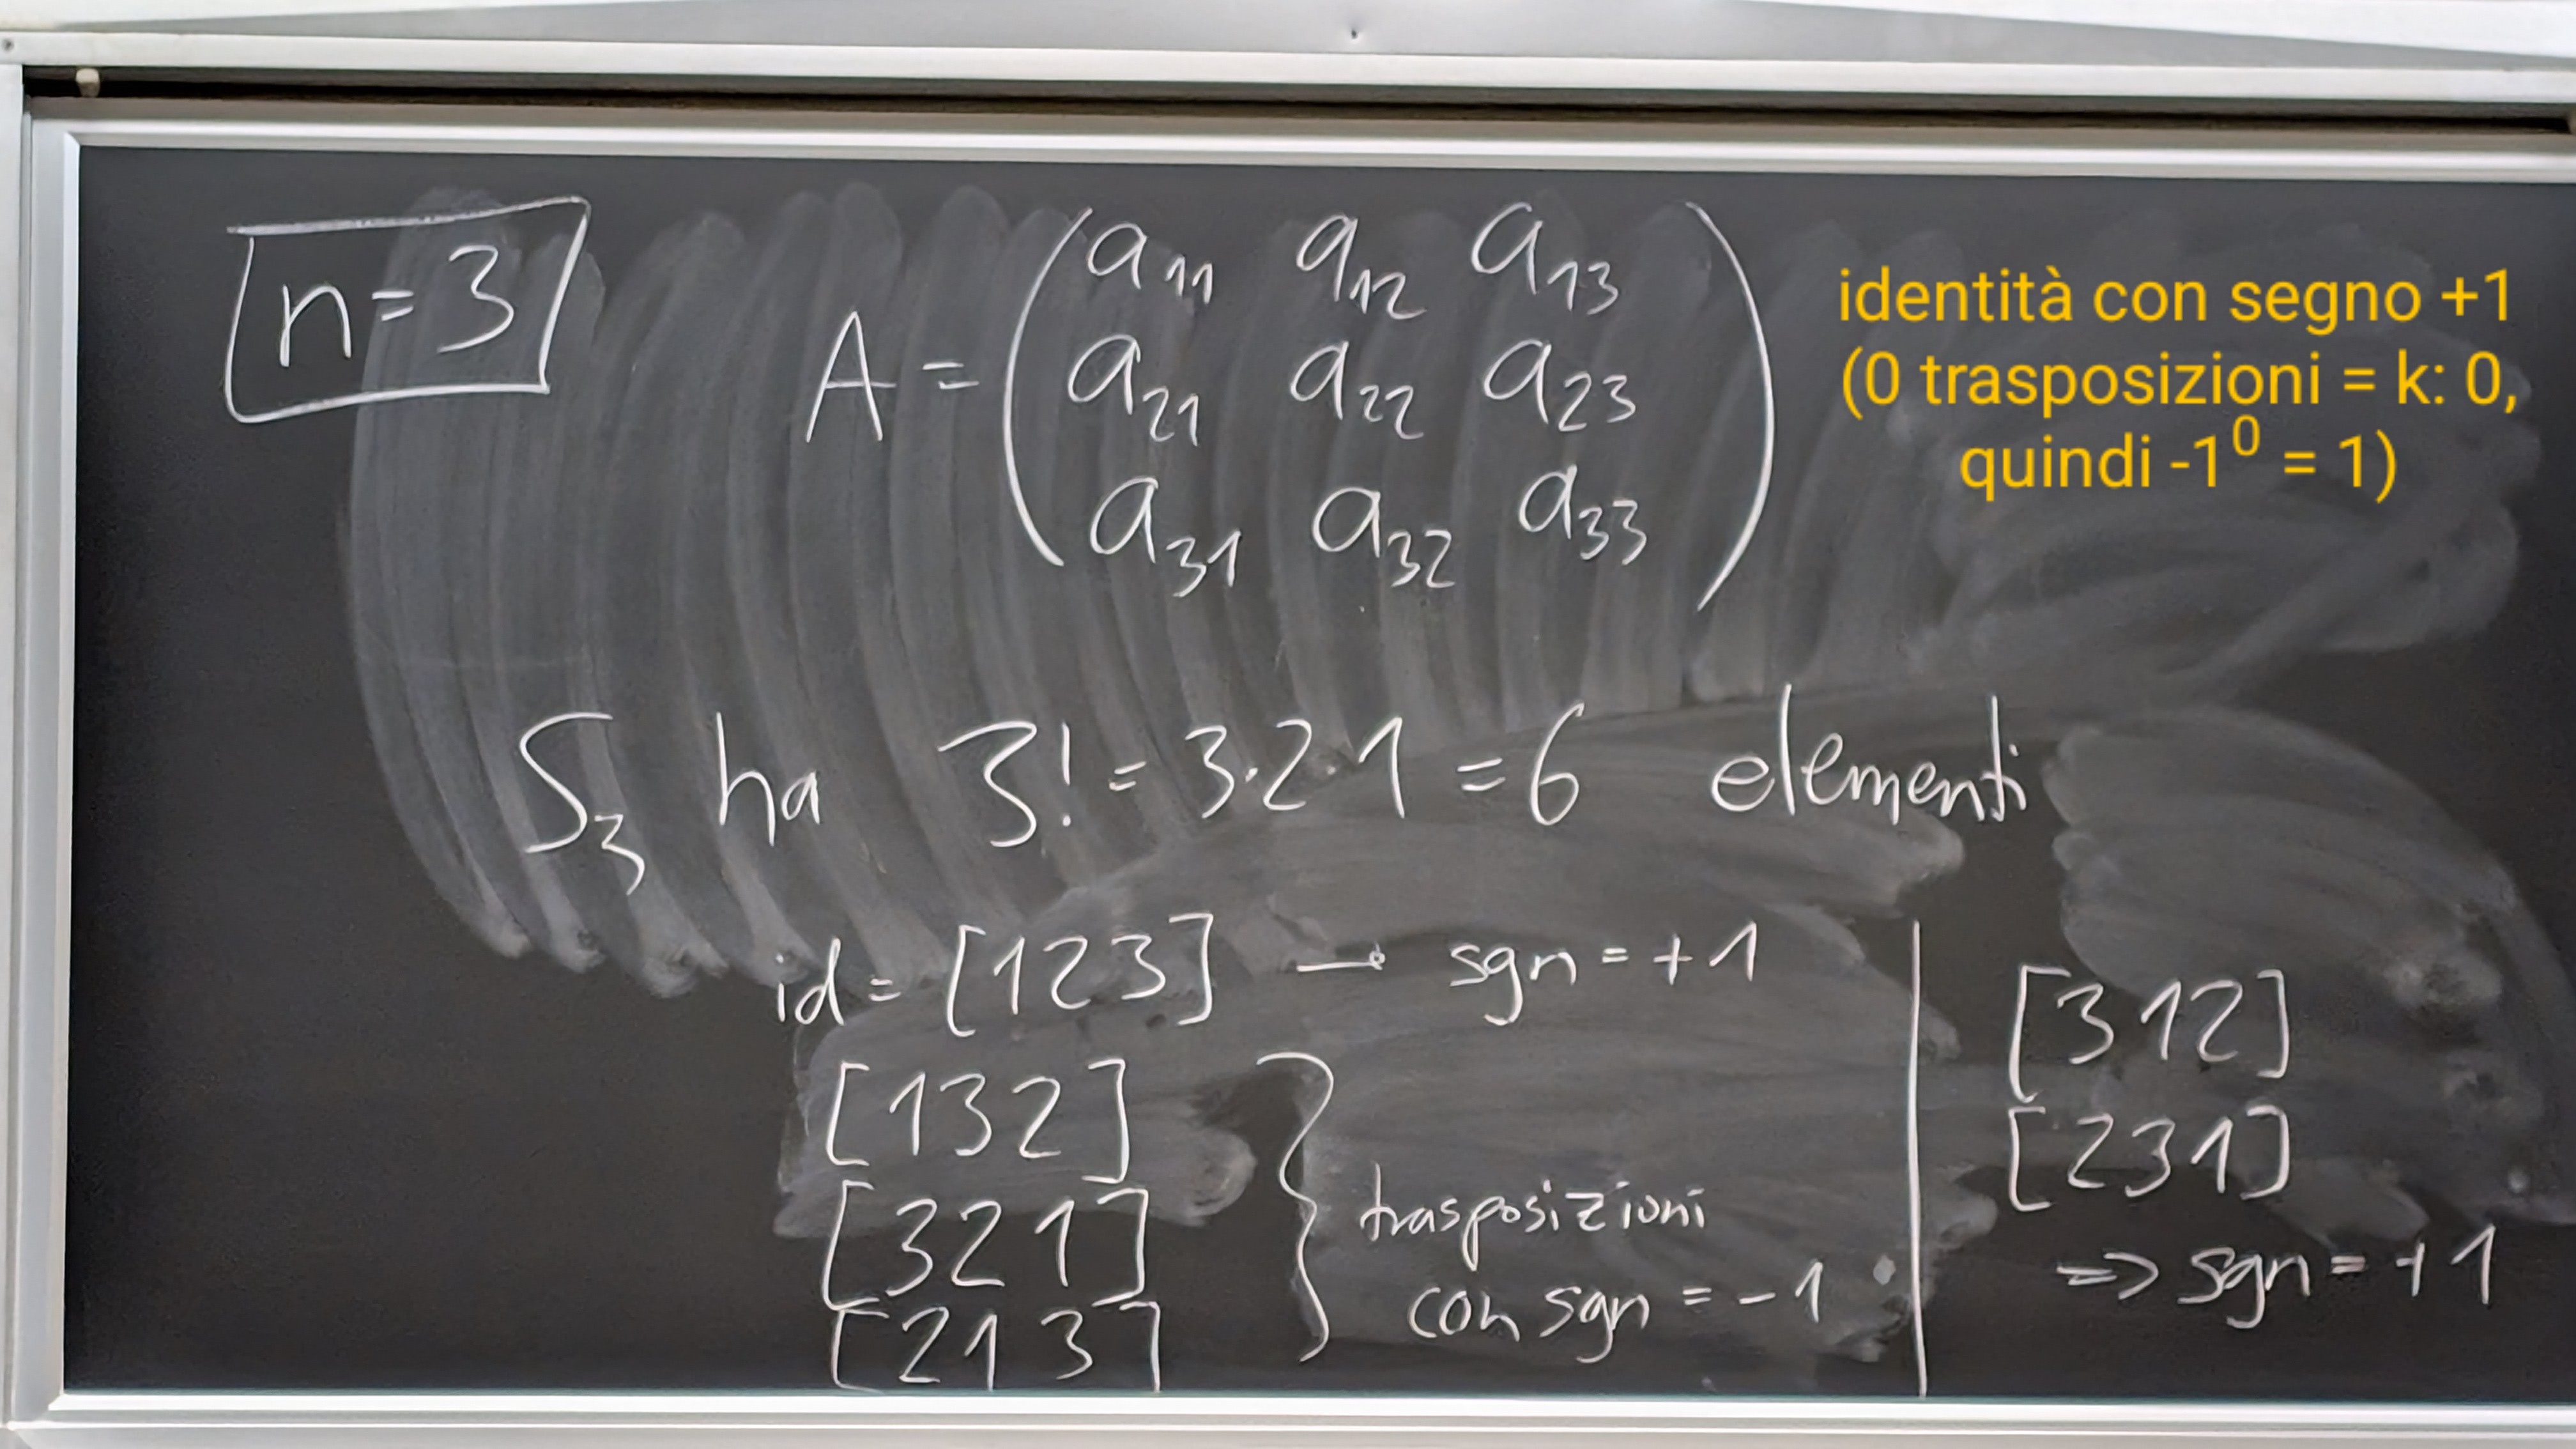 n=3
A = ( a₁₁ a₁₂ a₁₃
a₂₁ a₂₂ a₂₃
a₃₁ a₃₂ a₃₃ )
identità con segno +1
(0 trasposizioni = k: 0,
quindi -1⁰ = 1)
S₃ ha 3! = 3·2·1 = 6 elementi
id = [123] → sgn = +1
[132]
[321]
[213]
} trasposizioni
con sgn = -1
[312]
[231]
=> sgn = +1